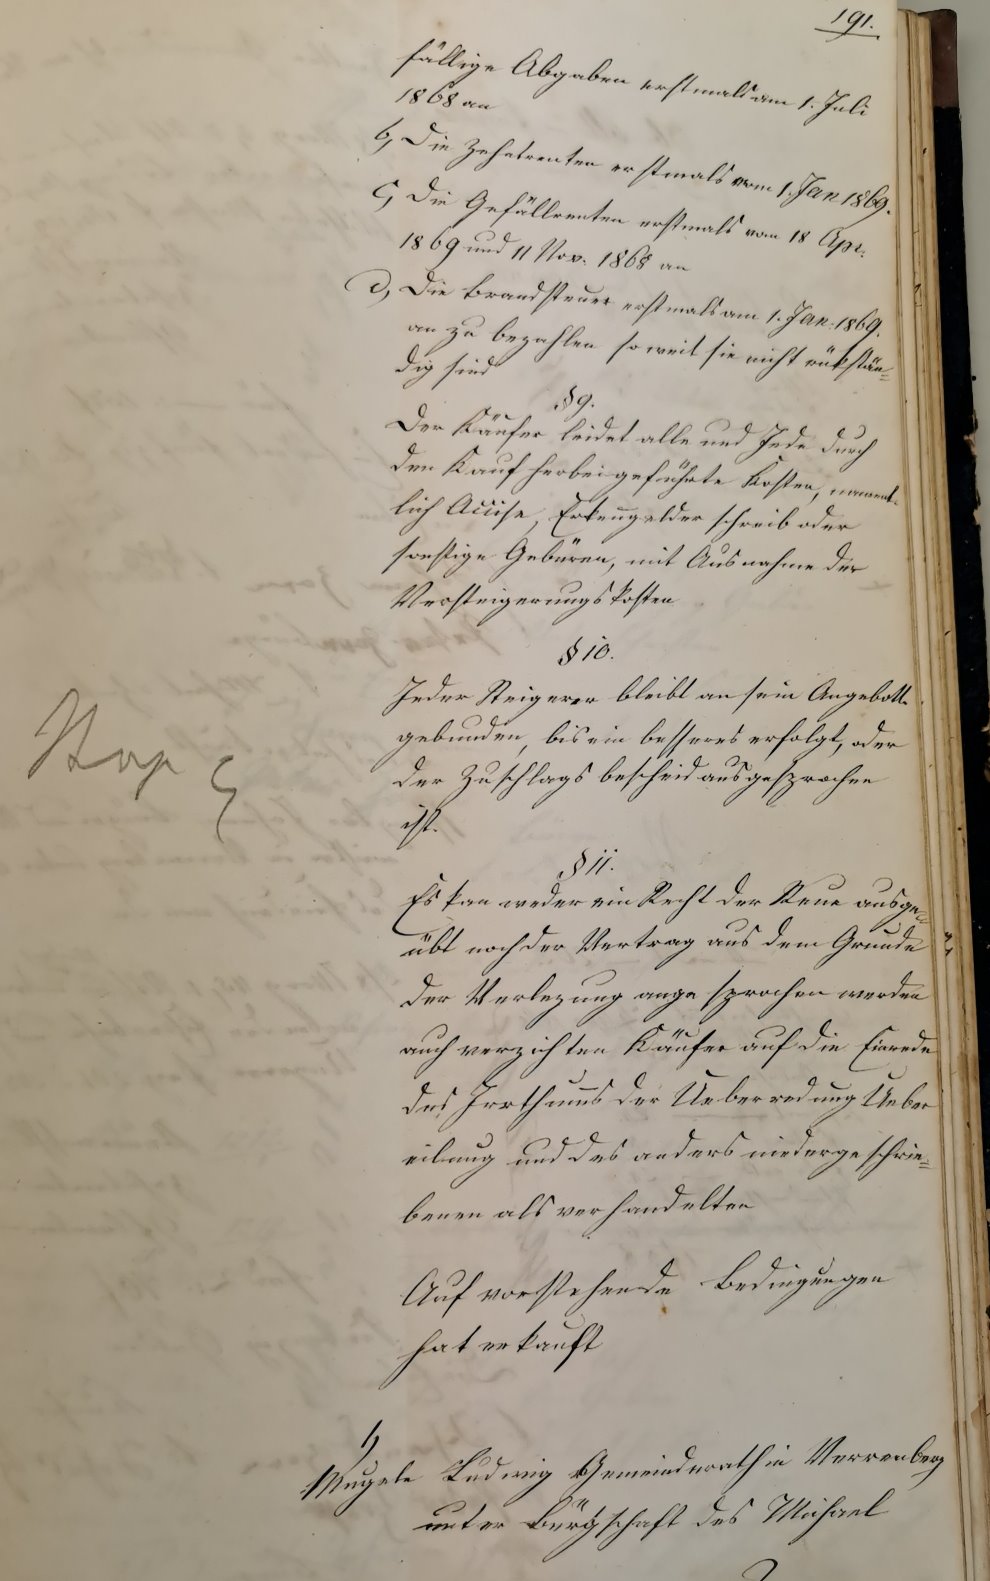 191.
fällige Abgaben erstmals am 1. Juli
1868 an
b, Die Zehntrenten erstmals vom 1. Jan 1869.
c, Die Gefällrenten erstmals vom 18 Apr.
1869 und 11 Nov. 1868 an
d, Die Brandsteuer erstmals am 1. Jan. 1869.
an zu bezahlen so weit sie nicht rükstän=
dig sind
§ 9.
Der Käufer leidet alle und Jede durch
den Kauf herbeigeführte Kosten, nament-
lich Accise, Erkenngelder schreib oder
sonstige Gebüren, mit Ausnahme der
Versteigerungskosten
§ 10.
Jeder Steigerer bleibt an sein Angebott
gebunden, bis ein besseres erfolgt, oder
der Zuschlags bescheid ausgesprochen
ist.
§ 11.
Es kan weder ein Recht der Reue ausge=
übt noch der Vertrag aus dem Grunde
der Verlezung ange sprochen werden
auch verzichten Käufer auf die Einrede
des Irrthums der Ueberredung Ueber
eilung und des anders niedergeschrie=
benen als verhandelten
Auf vorstehende Bedingungen
hat erkauft
1,
Mugele Ludwig Gemeinderath in Verrenberg
unter Bürgschaft des Michael